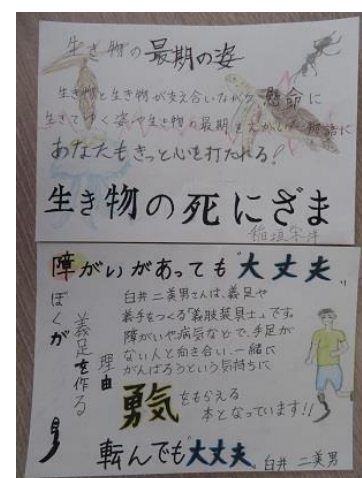 生き物の最期の姿
生き物と生き物が支え合いながら懸命に
生きてゆく姿や生き物の最期をえがいた物語に
あなたもきっと心を打たれる!
生き物の死にざま
稲垣栄洋
障がいがあっても"大丈夫"
ぼくが
義足を作る
理由
臼井二美男さんは、義足や
義手をつくる『義肢装具士』です。
障がいや病気などで、手足が
ない人と向き合い、一緒に
がんばろうという気持ちに
勇気をもらえる
本となっています!!
転んでも大丈夫
臼井 二美男